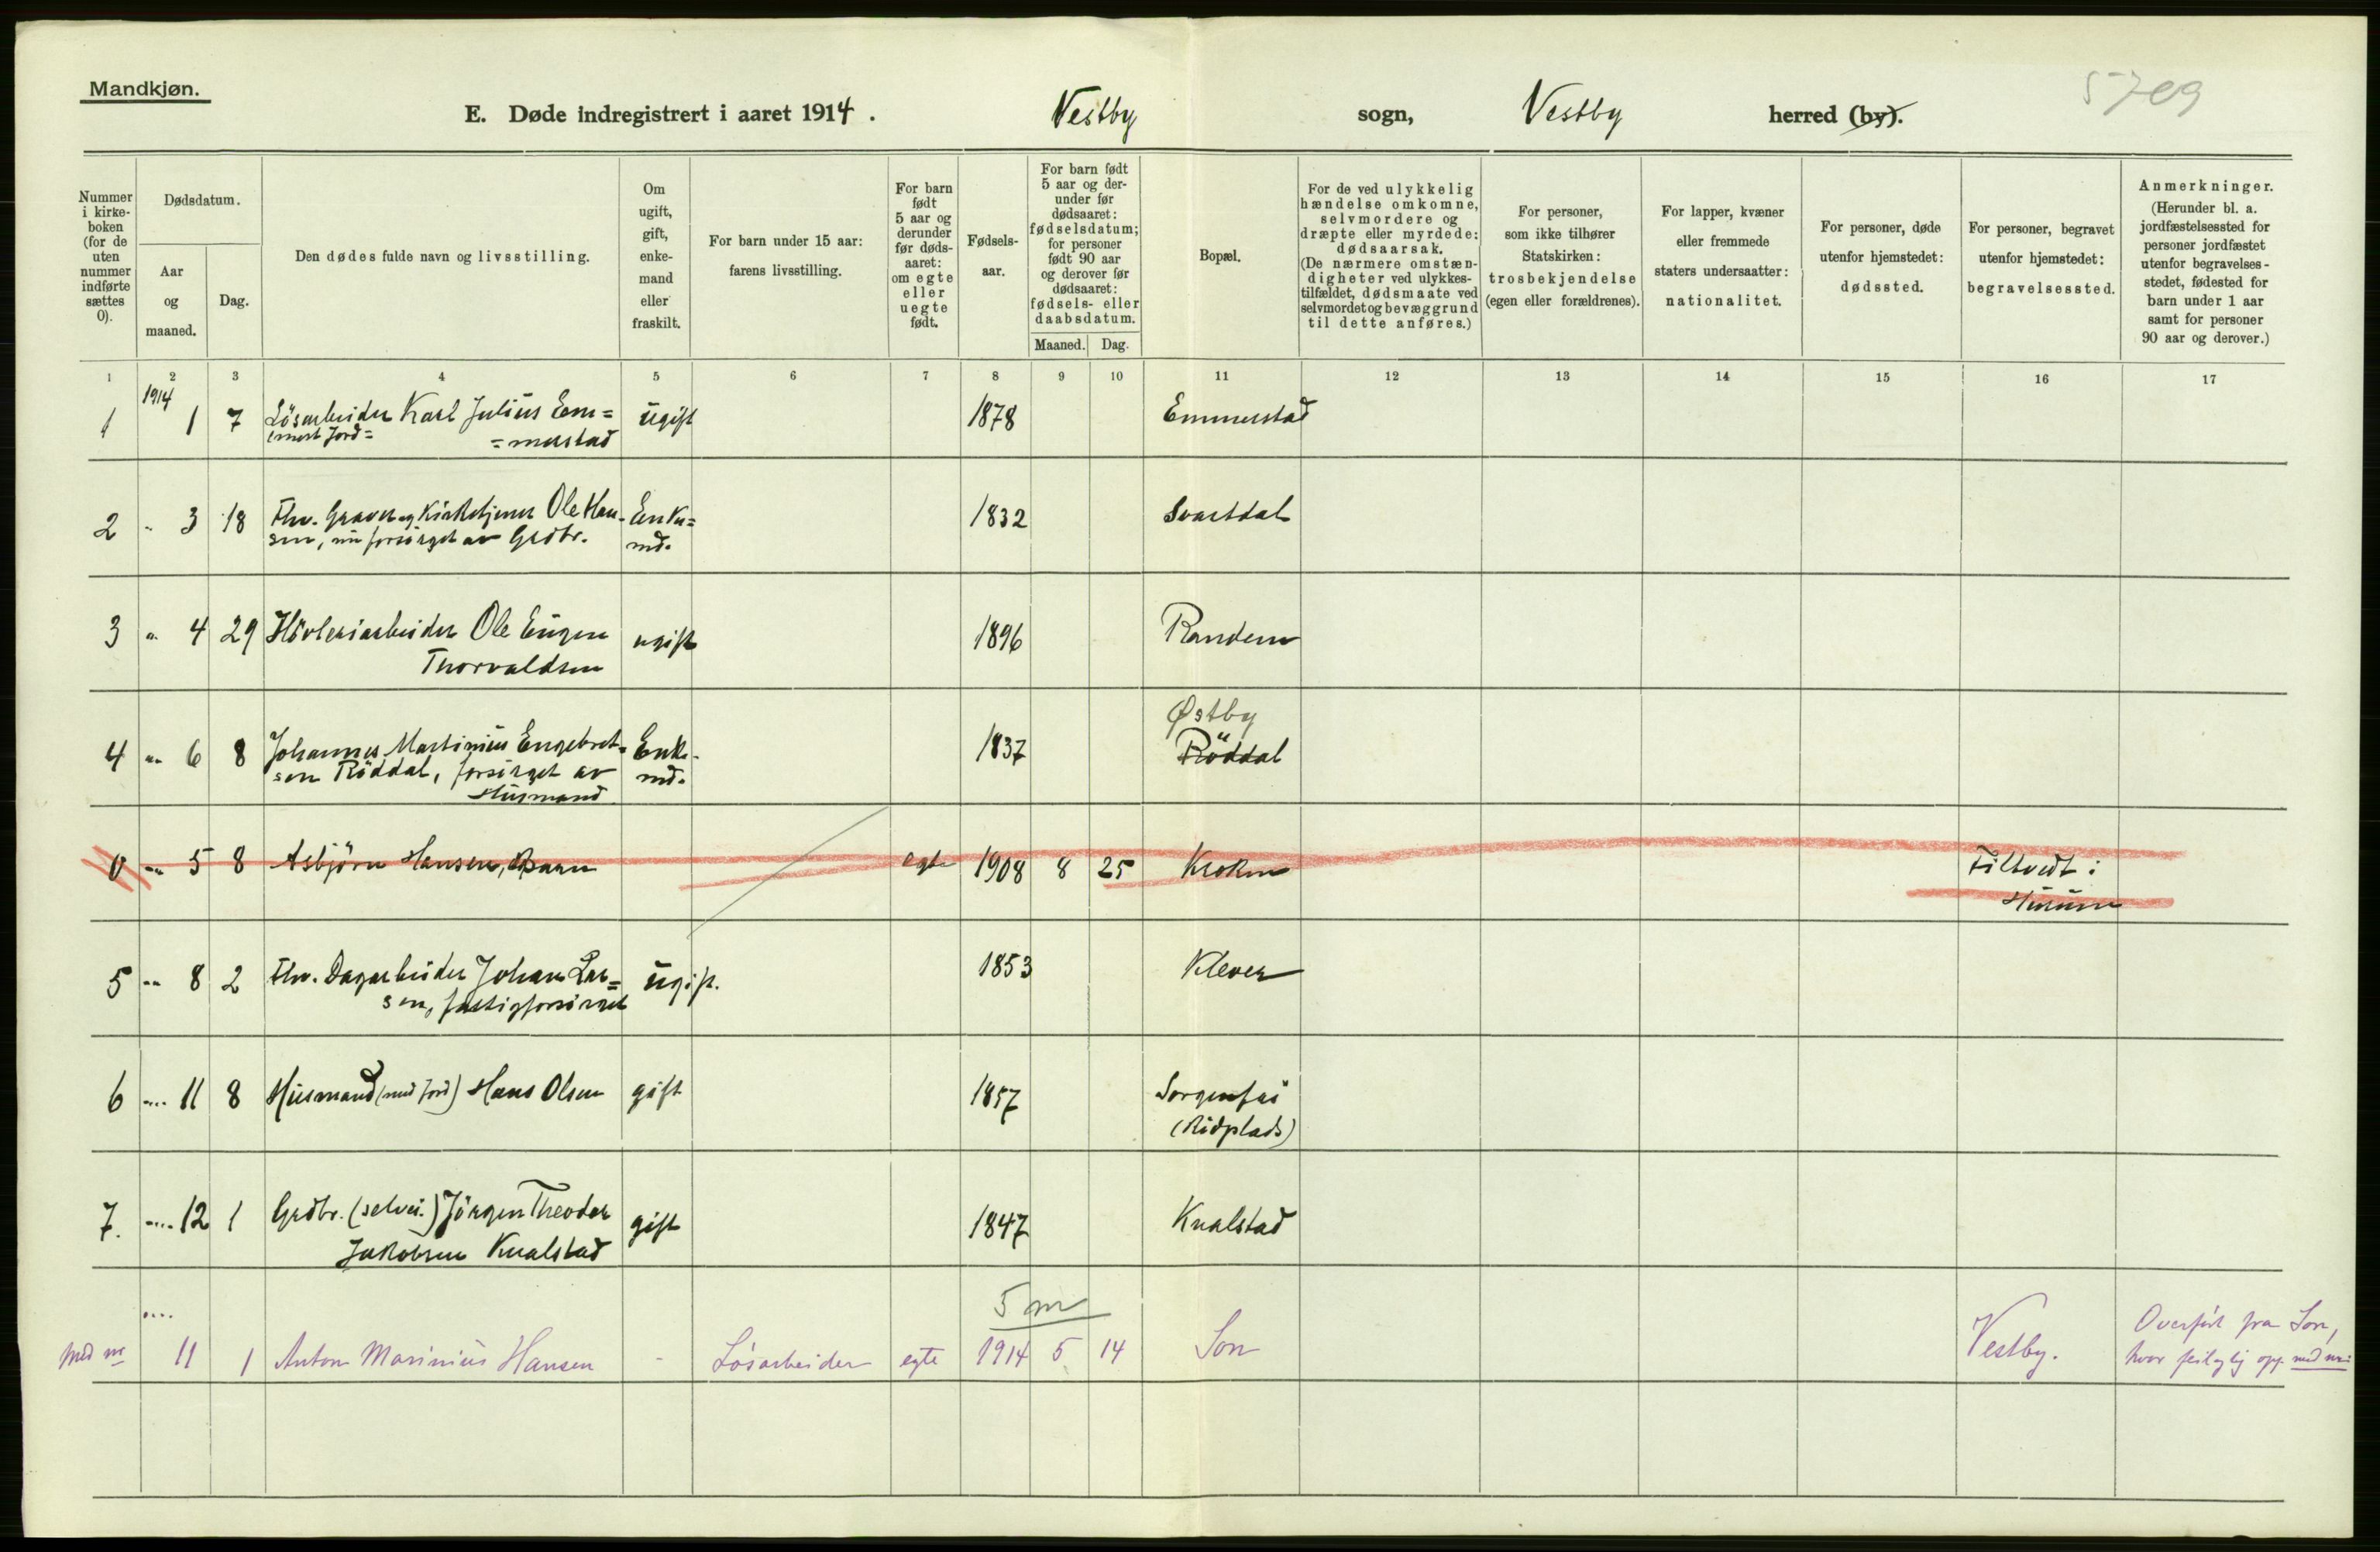 Mandkjøn.
5709
E. Døde indregistrert i aaret 1914. Vestby sogn, Vestby herred (by).
Nummer i kirke- boken (for de uten nummer indførte sættes 0).
Dødsdatum.
Aar og maaned.
Dag.
Den dødes fulde navn og livsstilling.
Om ugift, gift, enke- mand eller fraskilt.
For barn under 15 aar: farens livsstilling.
For barn født 5 aar og derunder før døds- aaret: om egte eller uegte født.
Fødsels- aar.
For barn født 5 aar og der- under før dødsaaret: fødselsdatum; for personer født 90 aar og derover før dødsaaret: fødsels- eller daabsdatum.
Maaned. Dag.
Bopæl.
For de ved ulykkelig hændelse omkomne, selvmordere og dræpte eller myrdede: dødsaarsak. (De nærmere omstæn- digheter ved ulykkes- tilfældet, dødsmaate ved selvmordet og bevæggrund til dette anføres.)
For personer, som ikke tilhører Statskirken: trosbekjendelse (egen eller forældrenes).
For lapper, kvæner eller fremmede staters undersaatter: nationalitet.
For personer, døde utenfor hjemstedet: dødssted.
For personer, begravet utenfor hjemstedet: begravelsessted.
Anmerkninger. (Herunder bl. a. jordfæstelsessted for personer jordfæstet utenfor begravelses- stedet, fødested for barn under 1 aar samt for personer 90 aar og derover.)
1 2 3 4 5 6 7 8 9 10 11 12 13 14 15 16 17
1914
1 1 7 Lösarbeider Karl Julius Em= ugift 1878 Emmerstad
Jord= =merstad
2 " 3 18 Fhv. Graver og Kirketjener Ole Han- Enke= 1832 Svartdal
sen, nu forsörget av Grdbr. md.
3 " 4 29 Hövleriarbeider Ole Eugen ugift 1896 Randem
Thorvaldsen
Østby
4 " 6 8 Johannes Martinius Engebret- Enke- 1837 Röddal
sen Röddal, forsörget av md.
Husmand
0 " 5 8 Asbjörn Hansen, Barn egte 1908 8 25 Kroken Filtvedt i
Hurum
5 " 8 2 Fhv. Dagarbeider Johan Lar= ugift. 1853 Klever
sen, fattigforsörget
6 " 11 8 Husmand (med jord) Hans Olsen gift 1857 Sorgenfri
(Ridplads)
7. " 12 1 Grdbr. (selvei.) Jörgen Theodor gift 1847 Knalstad
Jakobsen Knalstad
5 m
Med nr 11 1 Anton Marinius Hansen - Lösarbeider egte 1914 5 14 Son Vestby. Overfört fra Son,
hvor feilaglig opf. med nr: